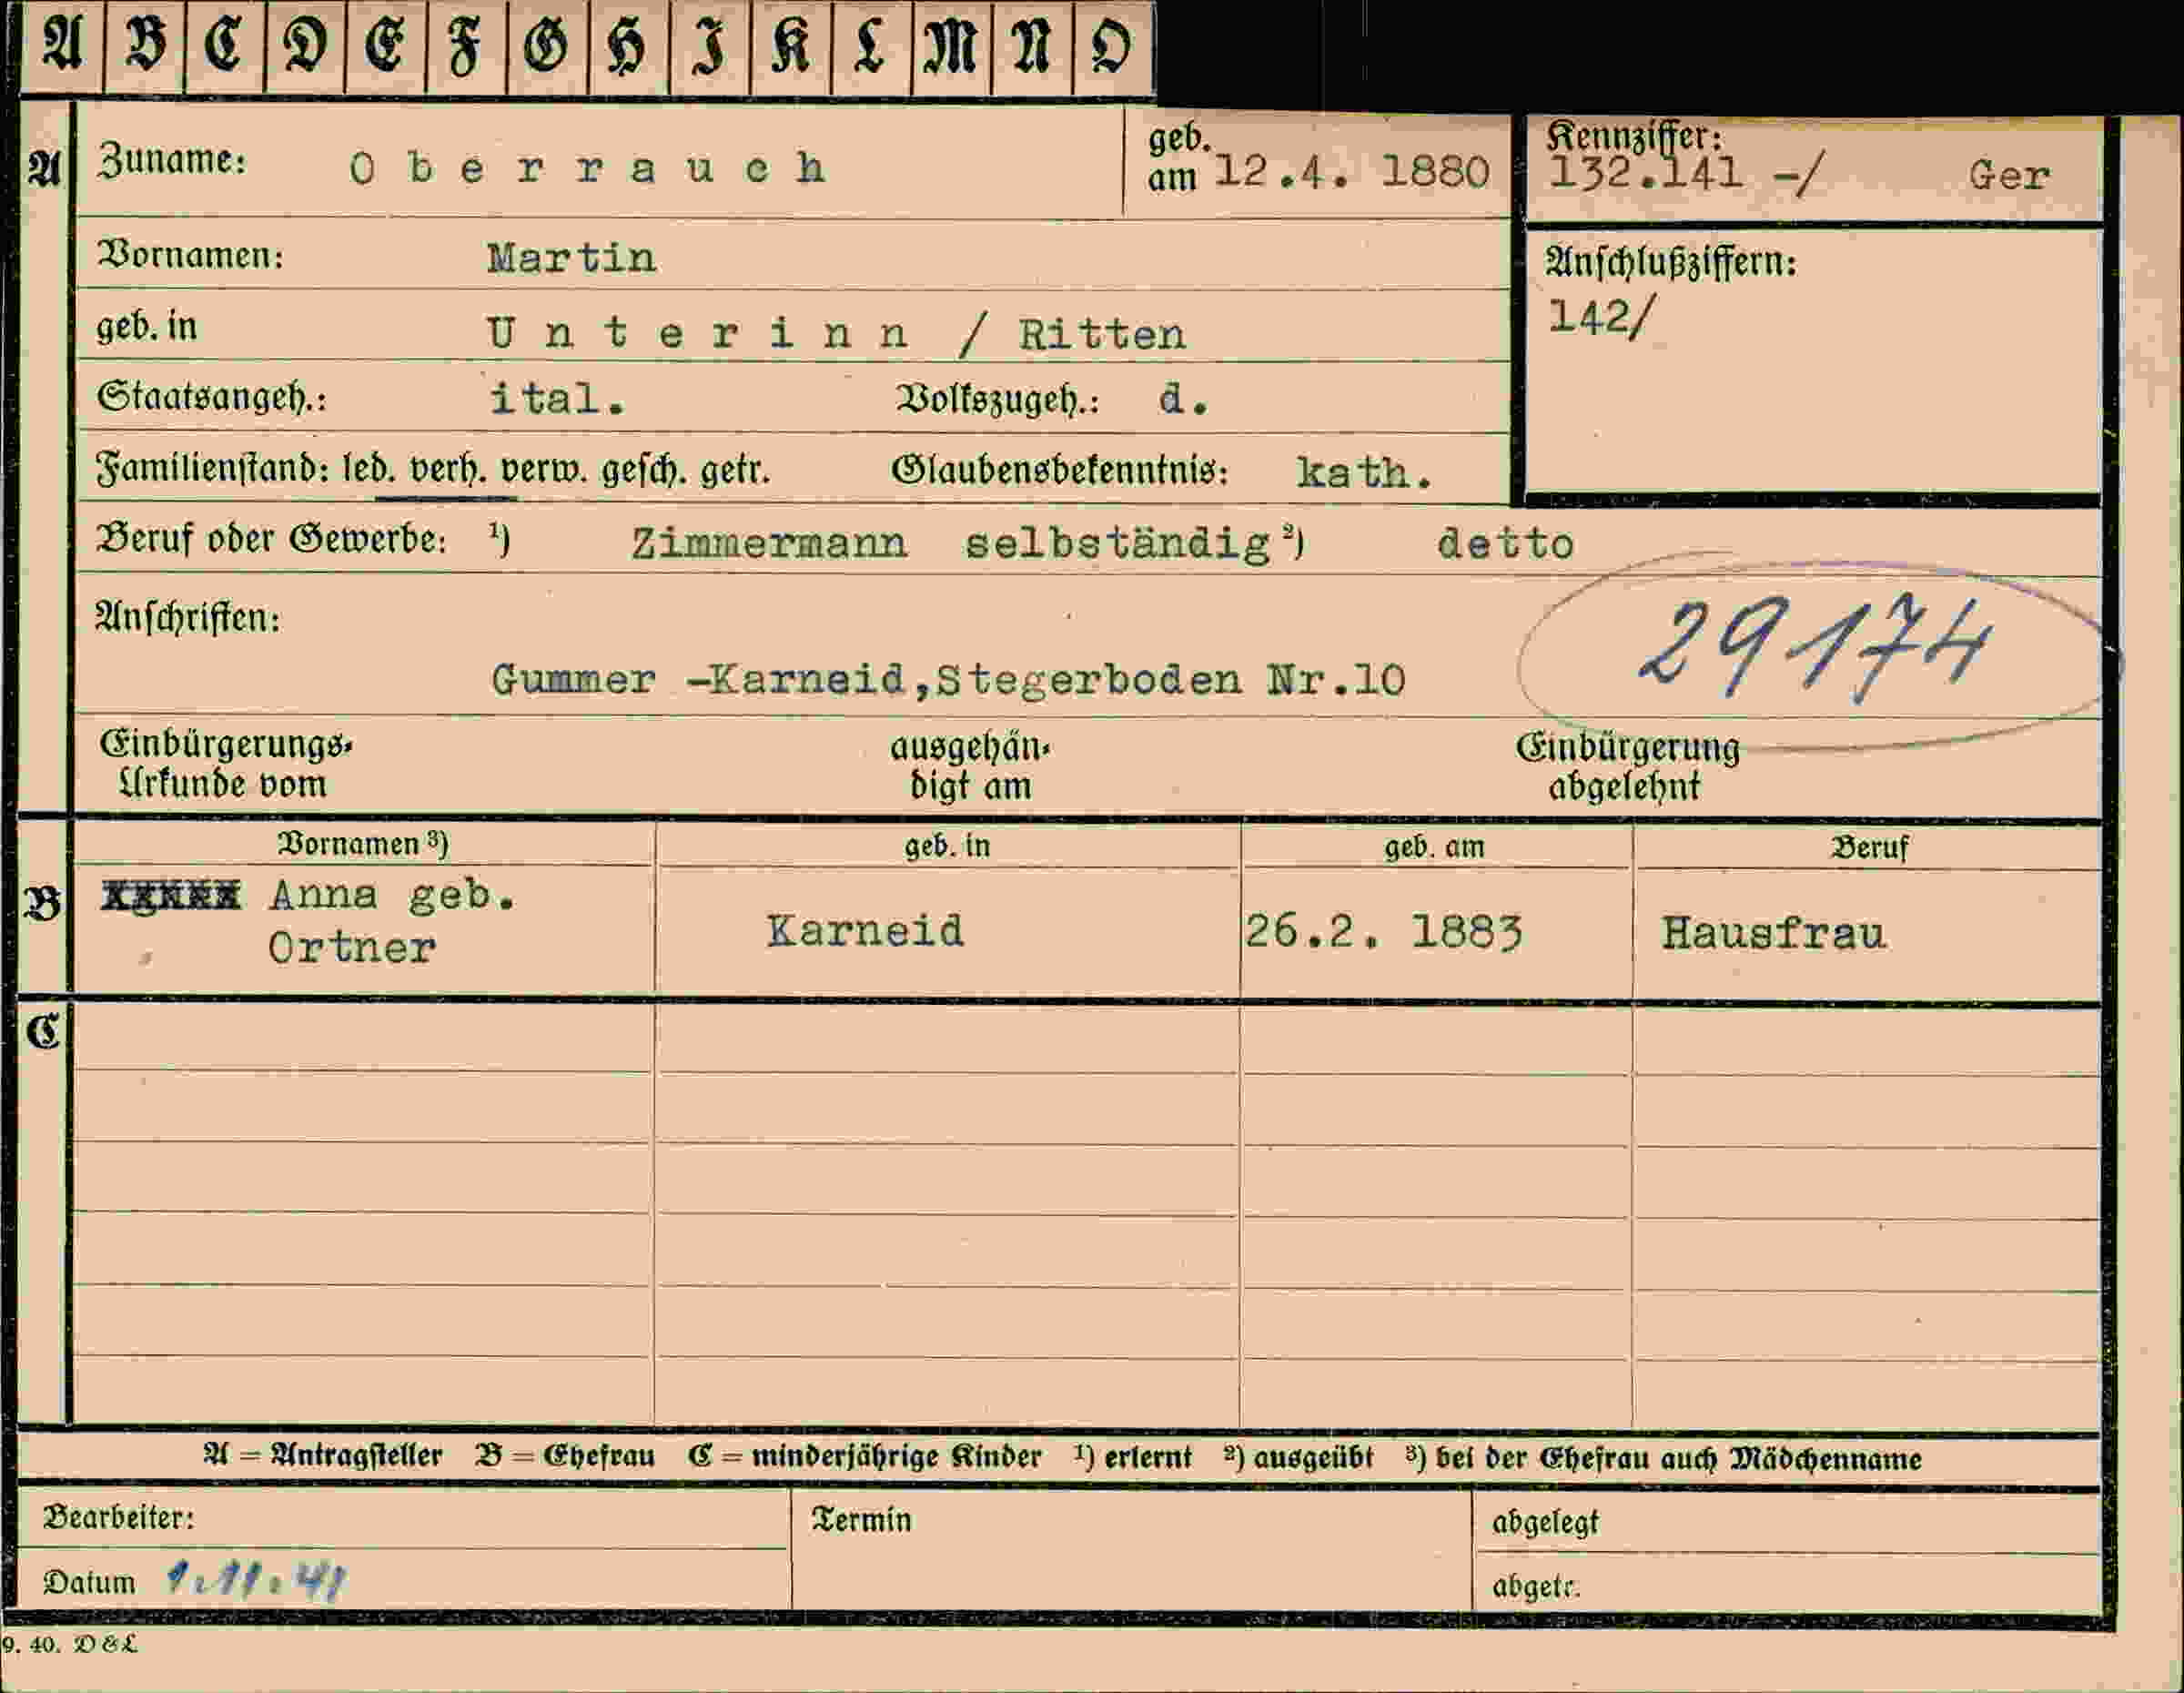 A B C D E F G H I K L M N O
A Zuname: Oberrauch geb. am 12.4. 1880 Kennziffer: 132.141 -/ Ger
Vornamen: Martin Anschlußziffern:
geb. in Unterinn / Ritten 142/
Staatsangeh.: ital. Volkszugeh.: d.
Familienstand: led. verh. verw. gesch. getr. Glaubensbekenntnis: kath.
Beruf oder Gewerbe: ¹) Zimmermann selbständig ²) detto
Anschriften: 29174
Gummer -Karneid,Stegerboden Nr.10
Einbürgerungs- ausgehän- Einbürgerung
Urkunde vom digt am abgelehnt
Vornamen ³) geb. in geb. am Beruf
B Anna geb.
Ortner Karneid 26.2. 1883 Hausfrau
C
A = Antragsteller B = Ehefrau C = minderjährige Kinder ¹) erlernt ²) ausgeübt ³) bei der Ehefrau auch Mädchenname
Bearbeiter: Termin abgelegt
Datum 1.11.41 abgetr.
9. 40. D & L